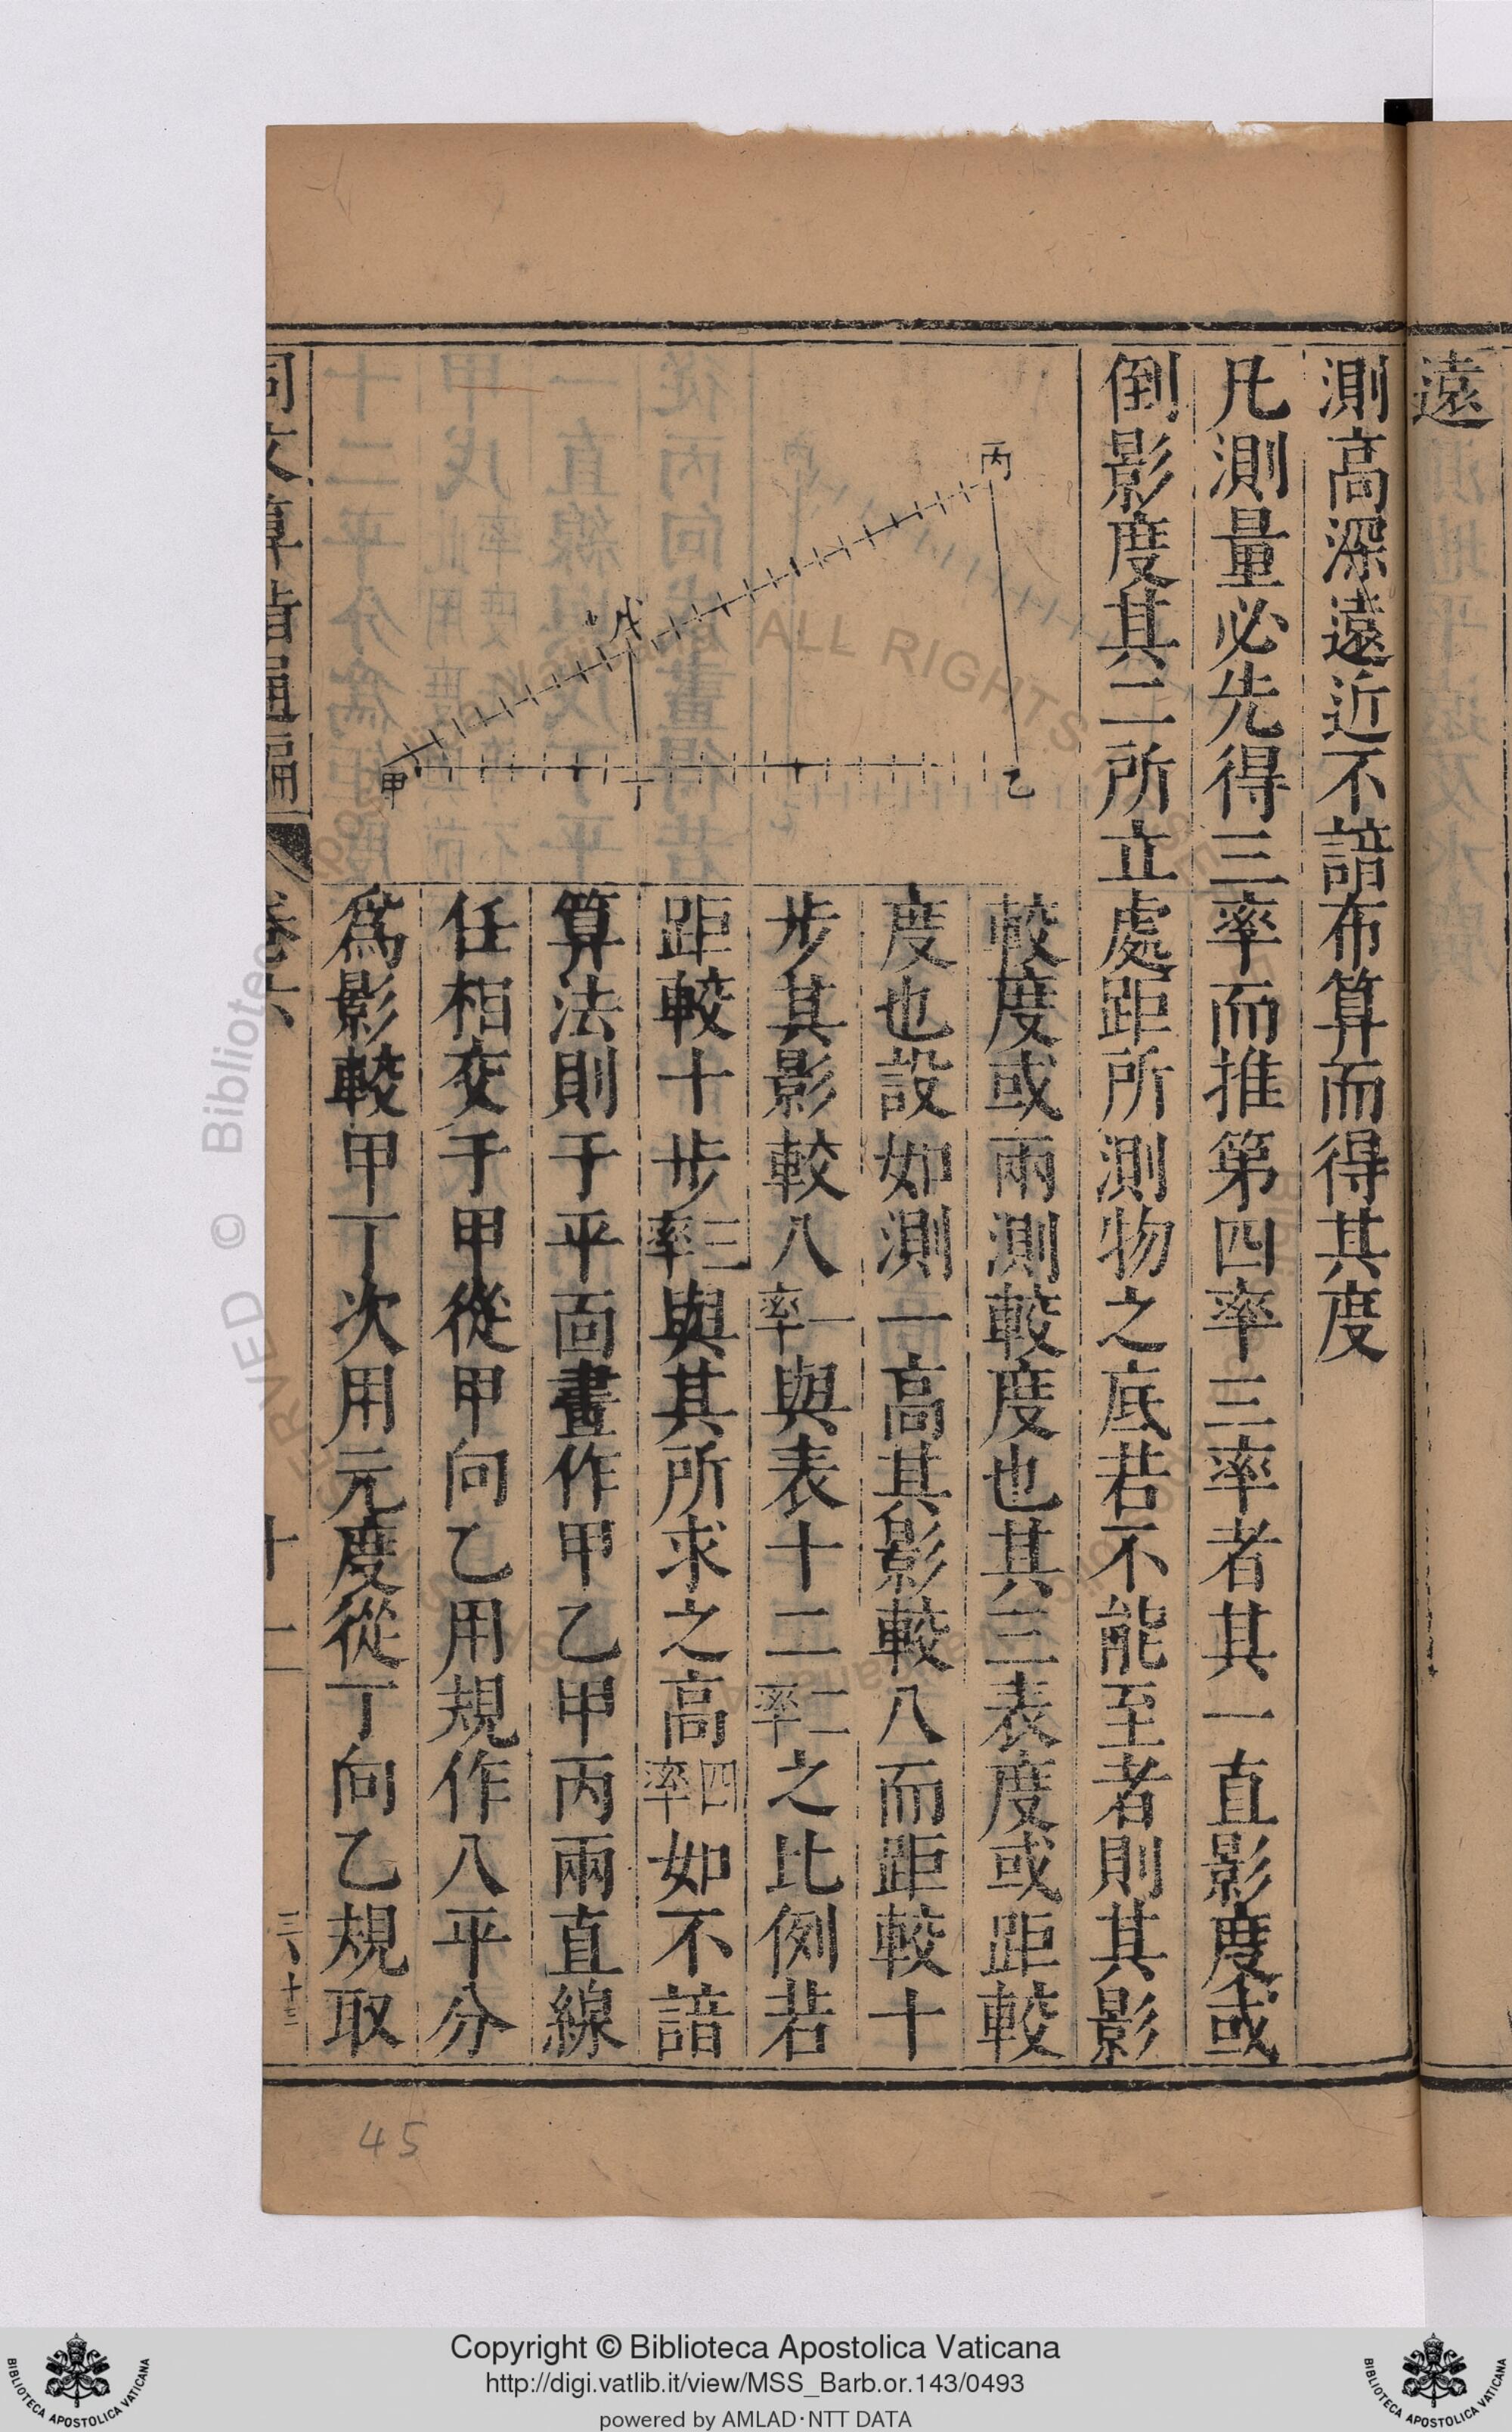 遠
測高深遠近不諳布算而得其度
凡測量必先得三率而推第四率三率者其一直影度或
倒影度其二所立處距所測物之底若不能至者則其影
較度或兩測較度也其三表度或距較
度也設如測一高其影較八而距較十
步其影較八一率與表十二二率之比例若
距較十步三率與其所求之高四率如不諳
算法則于平面畫作甲乙甲丙兩直線
任相交于甲從甲向乙用規作八平分
為影較甲丁次用元度從丁向乙規取
丙
戊
甲
丁
乙
同文算指通編
卷六
十二
三、十三
45
RESERVED © Biblioteca
ALL RIGHTS
Copyright © Biblioteca Apostolica Vaticana
http://digi.vatlib.it/view/MSS_Barb.or.143/0493
powered by AMLAD·NTT DATA
BIBLIOTECA APOSTOLICA VATICANA
BIBLIOTECA APOSTOLICA VATICANA